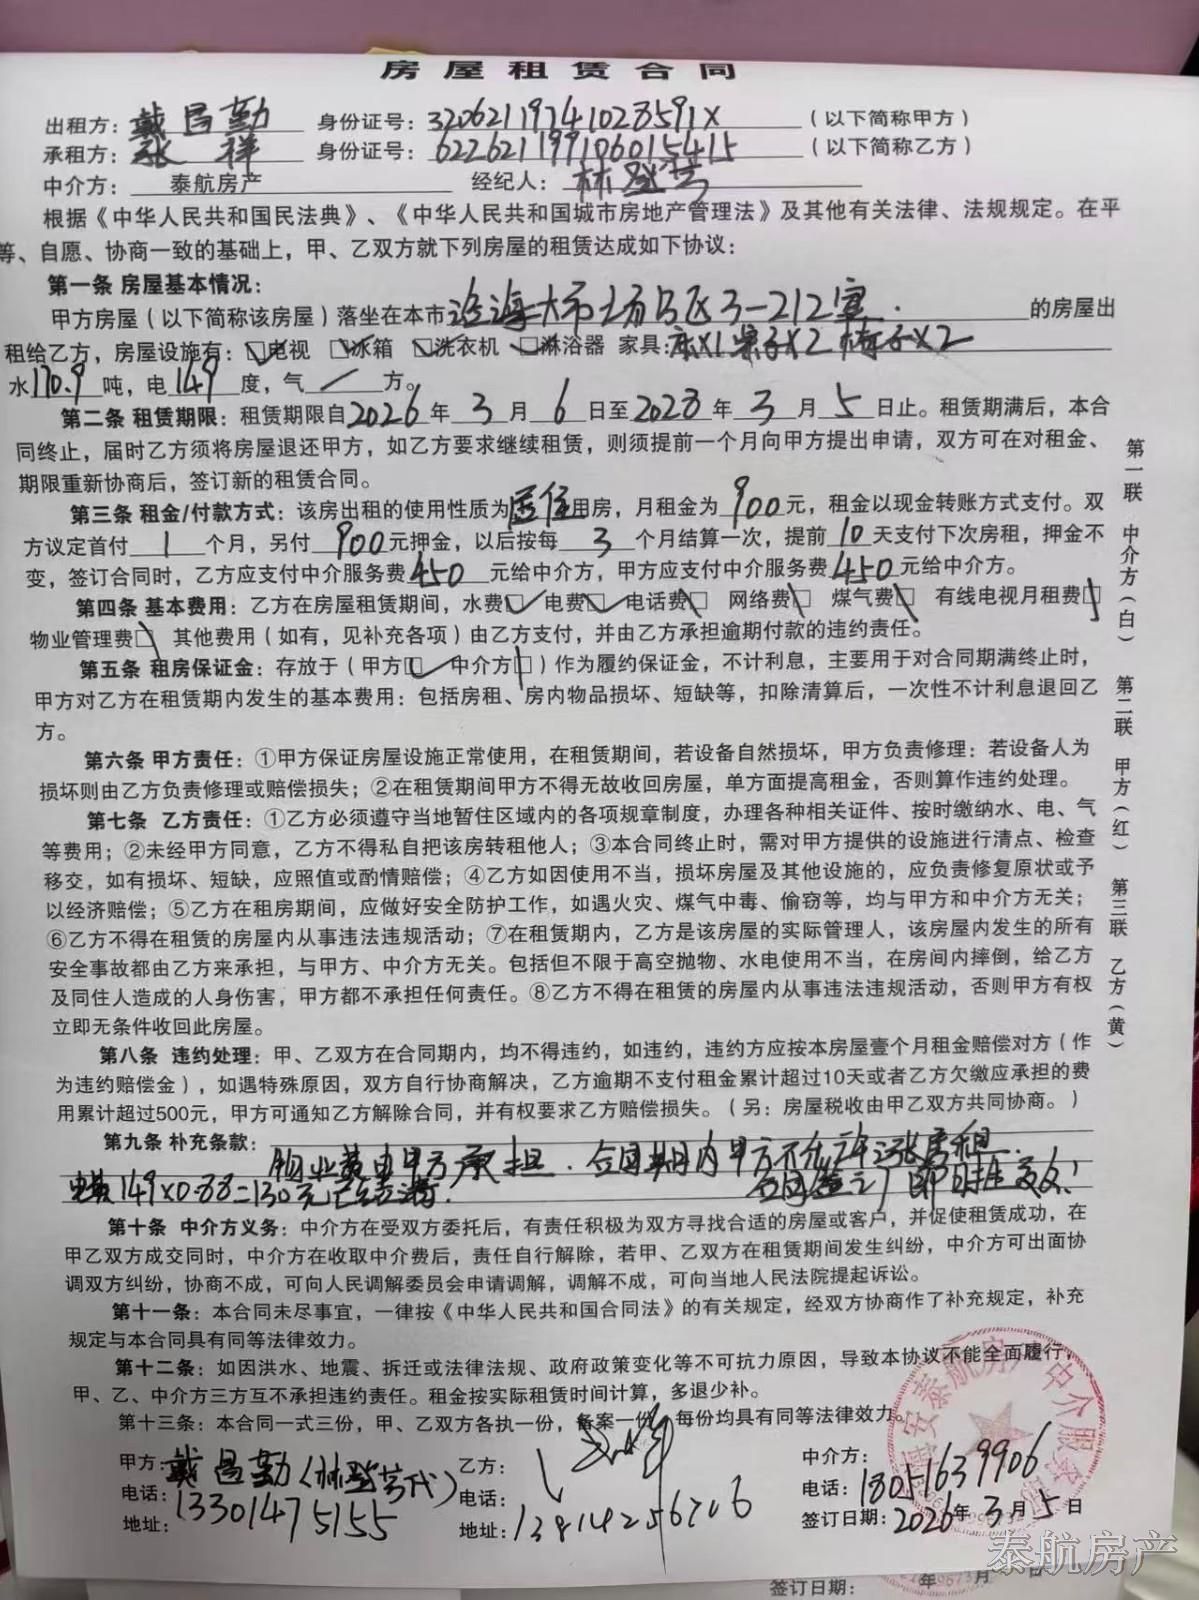 房屋租赁合同
出租方：戴昌勤 身份证号：32062119741028591X （以下简称甲方）
承租方：张祥 身份证号：622621199106015415 （以下简称乙方）
中介方：泰航房产 经纪人：林登芳
根据《中华人民共和国民法典》、《中华人民共和国城市房地产管理法》及其他有关法律、法规规定。在平
等、自愿、协商一致的基础上，甲、乙双方就下列房屋的租赁达成如下协议：
第一条 房屋基本情况：
甲方房屋（以下简称该房屋）落坐在本市 大市场 区3-212室 的房屋出
租给乙方，房屋设施有：☑电视 ☑冰箱 ☑洗衣机 ☑淋浴器 家具：床X1 桌子X2 椅子X2
水170.9吨，电149度，气／方。
第二条 租赁期限：租赁期限自2026年3月6日至2028年3月5日止。租赁期满后，本合
同终止，届时乙方须将房屋退还甲方，如乙方要求继续租赁，则须提前一个月向甲方提出申请，双方可在对租金、
期限重新协商后，签订新的租赁合同。
第三条 租金/付款方式：该房出租的使用性质为居住用房，月租金为900元，租金以现金转账方式支付。双
方议定首付1个月，另付900元押金，以后按每3个月结算一次，提前10天支付下次房租，押金不
变，签订合同时，乙方应支付中介服务费450元给中介方，甲方应支付中介服务费450元给中介方。
第四条 基本费用：乙方在房屋租赁期间，水费☑ 电费☑ 电话费□ 网络费□ 煤气费□ 有线电视月租费□
物业管理费□ 其他费用（如有，见补充各项）由乙方支付，并由乙方承担逾期付款的违约责任。
第五条 租房保证金：存放于（甲方☑ 中介方□）作为履约保证金，不计利息，主要用于对合同期满终止时，
甲方对乙方在租赁期内发生的基本费用：包括房租、房内物品损坏、短缺等，扣除清算后，一次性不计利息退回乙
方。
第六条 甲方责任：①甲方保证房屋设施正常使用，在租赁期间，若设备自然损坏，甲方负责修理：若设备人为
损坏则由乙方负责修理或赔偿损失；②在租赁期间甲方不得无故收回房屋，单方面提高租金，否则算作违约处理。
第七条 乙方责任：①乙方必须遵守当地暂住区域内的各项规章制度，办理各种相关证件、按时缴纳水、电、气
等费用；②未经甲方同意，乙方不得私自把该房转租他人；③本合同终止时，需对甲方提供的设施进行清点、检查
移交，如有损坏、短缺，应照值或酌情赔偿；④乙方如因使用不当，损坏房屋及其他设施的，应负责修复原状或予
以经济赔偿；⑤乙方在租房期间，应做好安全防护工作，如遇火灾、煤气中毒、偷窃等，均与甲方和中介方无关；
⑥乙方不得在租赁的房屋内从事违法违规活动；⑦在租赁期内，乙方是该房屋的实际管理人，该房屋内发生的所有
安全事故都由乙方来承担，与甲方、中介方无关。包括但不限于高空抛物、水电使用不当，在房间内摔倒，给乙方
及同住人造成的人身伤害，甲方都不承担任何责任。⑧乙方不得在租赁的房屋内从事违法违规活动，否则甲方有权
立即无条件收回此房屋。
第八条 违约处理：甲、乙双方在合同期内，均不得违约，如违约，违约方应按本房屋壹个月租金赔偿对方（作
为违约赔偿金），如遇特殊原因，双方自行协商解决，乙方逾期不支付租金累计超过10天或者乙方欠缴应承担的费
用累计超过500元，甲方可通知乙方解除合同，并有权要求乙方赔偿损失。（另：房屋税收由甲乙双方共同协商。）
第九条 补充条款：物业费由甲方承担．合同期内甲方不允许涨房租．
电费149X0.88=130元已结清． 合同签订即时生效！
第十条 中介方义务：中介方在受双方委托后，有责任积极为双方寻找合适的房屋或客户，并促使租赁成功，在
甲乙双方成交同时，中介方在收取中介费后，责任自行解除，若甲、乙双方在租赁期间发生纠纷，中介方可出面协
调双方纠纷，协商不成，可向人民调解委员会申请调解，调解不成，可向当地人民法院提起诉讼。
第十一条：本合同未尽事宜，一律按《中华人民共和国合同法》的有关规定，经双方协商作了补充规定，补充
规定与本合同具有同等法律效力。
第十二条：如因洪水、地震、拆迁或法律法规、政府政策变化等不可抗力原因，导致本协议不能全面履行，
甲、乙、中介方三方互不承担违约责任。租金按实际租赁时间计算，多退少补。
第十三条：本合同一式三份，甲、乙双方各执一份，备案一份，每份均具有同等法律效力。
甲方：戴昌勤（林登芳代） 乙方： 中介方：
电话：13301475155 电话：13814256706 电话：18051639906
地址： 地址： 签订日期：2026年3月5日
第一联 中介方（白） 第二联 甲方（红） 第三联 乙方（黄）
安泰航房产中介服务
泰航房产
签订日期： 年 月 日